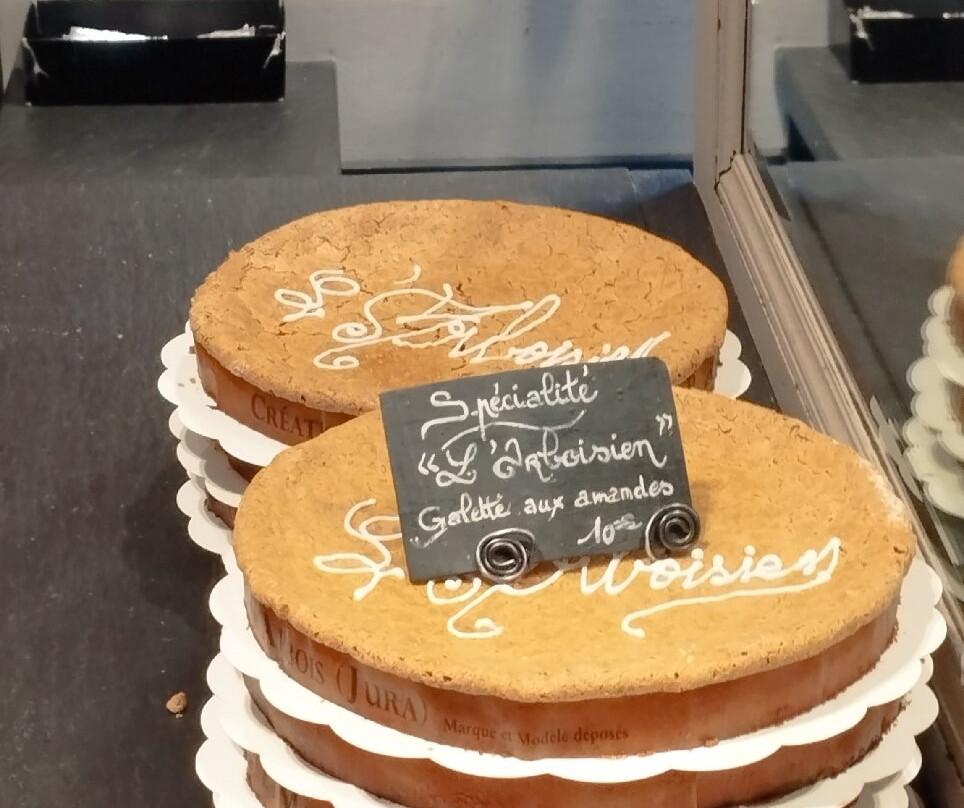 L'Arboisien
CRÉAT
Spécialité
"L'Arboisien"
Galette aux amandes
10
rboisien
BOIS (JURA)
Marque et Modèle déposés